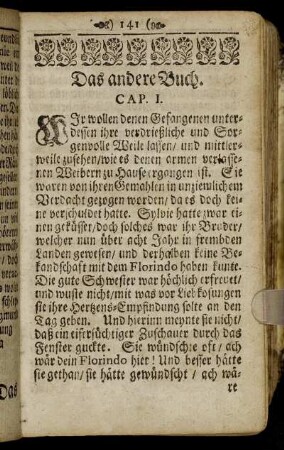 141
Das andere Buch.
CAP. I.
WIr wollen denen Gefangenen unter-
dessen ihre verdrießliche und Sor-
genvolle Weile lassen/ und mittler-
weile zusehen/ wie es denen armen verlasse-
nen Weibern zu Hause ergangen ist. Sie
waren von ihren Gemahlen in unziemlichem
Verdacht gezogen worden/ da es doch kei-
ne verschuldet hatte. Sylvie hatte zwar ei-
nen geküsset/ doch solches war ihr Bruder/
welcher nun über acht Jahr in frembden
Landen gewesen/ und derhalben keine Be-
kandschaft mit dem Florindo haben kunte.
Die gute Schwester war höchlich erfreuet/
und wuste nicht/ mit was vor Liebkosungen
sie ihre Hertzens-Empfindung solte an den
Tag geben. Und hierinn meynte sie nicht/
daß ein eifersüchtiger Zuschauer durch das
Fenster guckte. Sie wündschte oft/ ach
wär dein Florindo hier! Und besser hätte
sie gethan/ sie hätte gewündscht/ ach wä-
re
Das